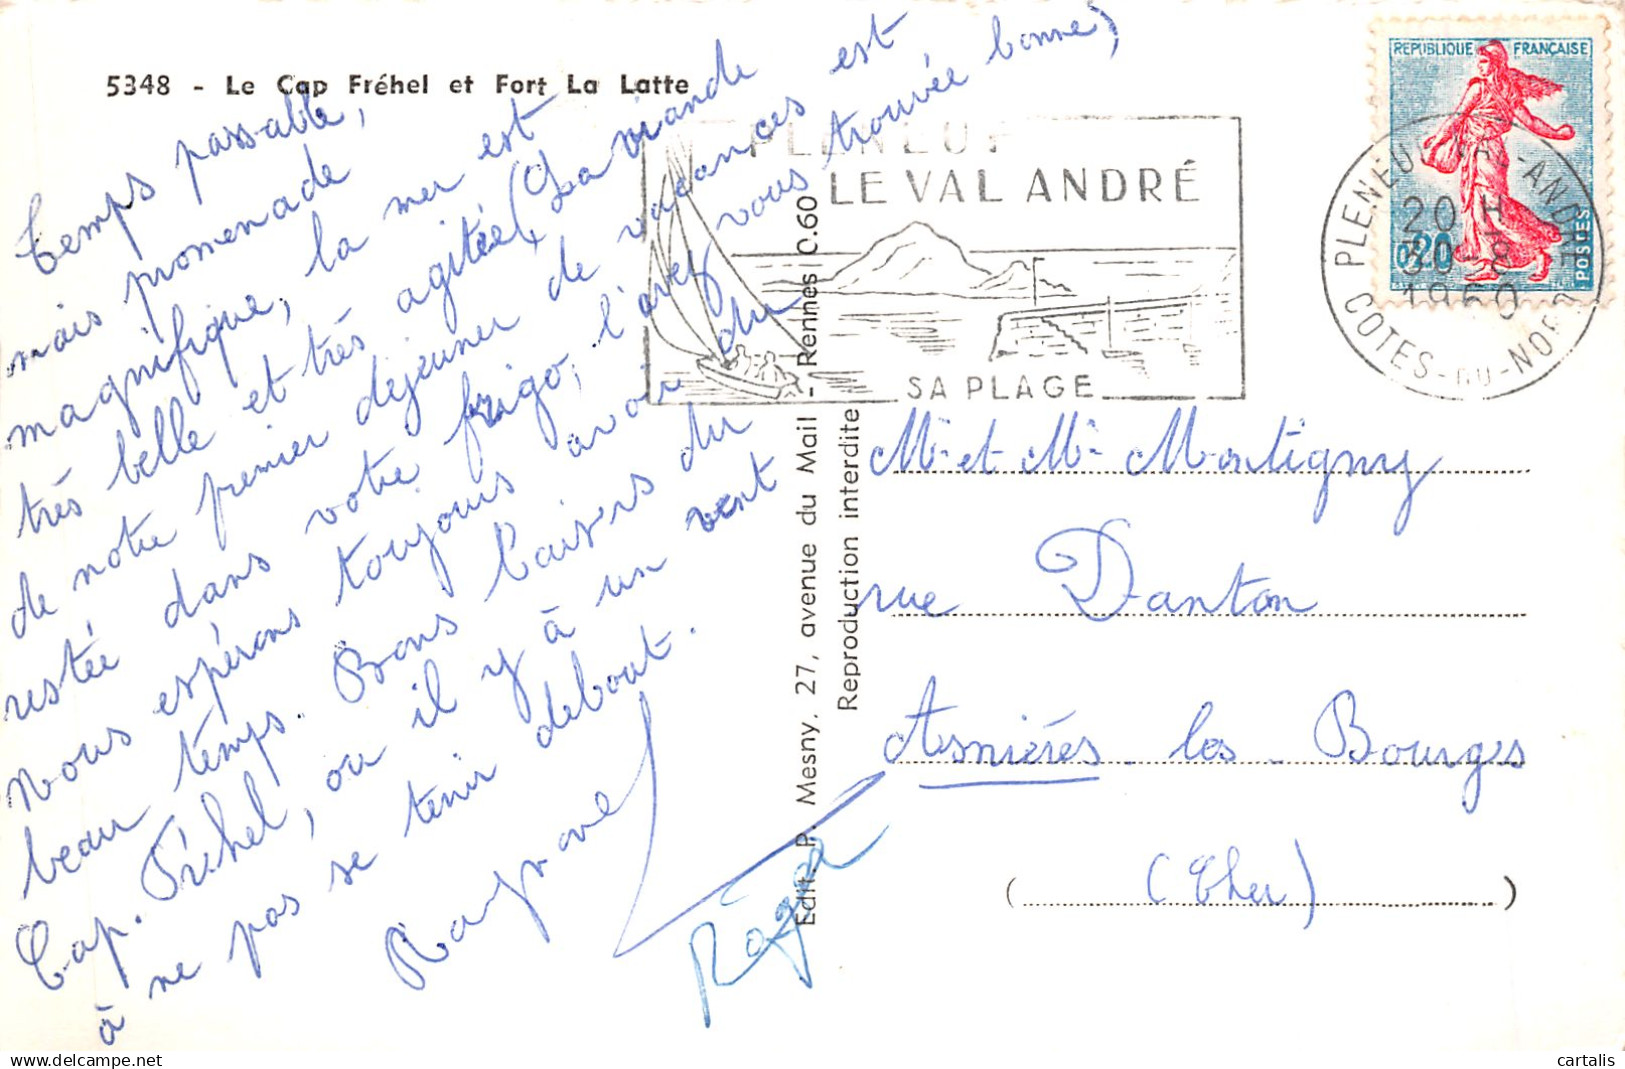 5348 - Le Cap Fréhel et Fort La Latte
Temps passable,
mais promenade
magnifique, la mer est
très belle et très agitée (La viande
de notre premier dejeuner de vacances est
restée dans votre frigo, l'avez vous trouvée bonne)
Nous espérons toujours avoir du
beau temps. Bons baisers du
Cap. Fréhel, ou il y à un vent
à ne pas se tenir debout.
Raymonde
Régine
PLENEUF
LE VAL ANDRÉ
SA PLAGE
REPUBLIQUE FRANÇAISE
0,20
POSTES
PLENEUF-VAL-ANDRE
20 H
30-8
1960
COTES-DU-NORD
Edit. P. Mesny, 27, avenue du Mail - Rennes 0.60
Reproduction interdite
Mr et Me Montigny
rue Danton
Asnières les Bourges
(Cher)
cartalis